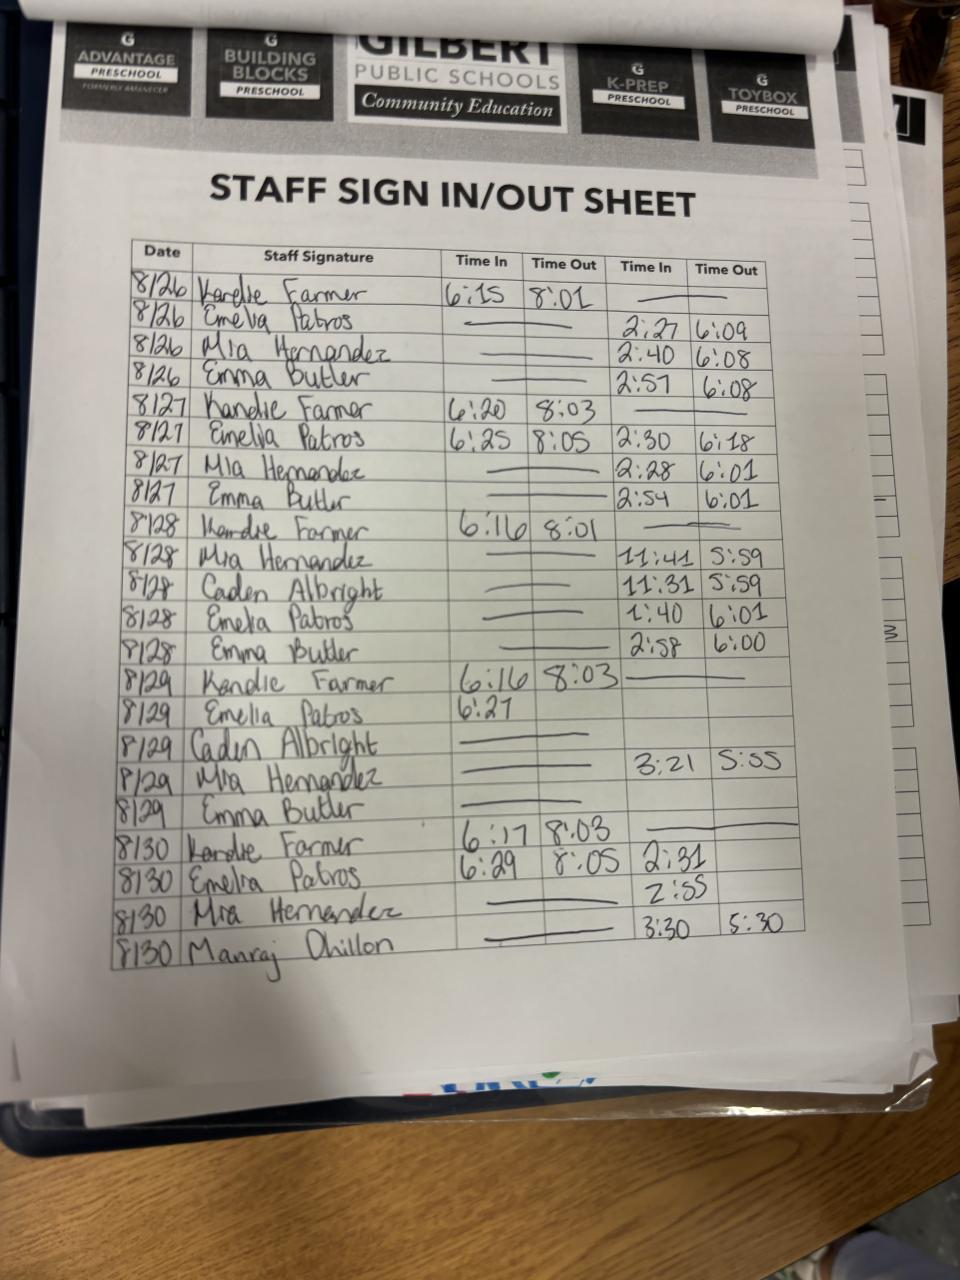 G ADVANTAGE PRESCHOOL FORMERLY
G BUILDING BLOCKS PRESCHOOL
GILBERT PUBLIC SCHOOLS Community Education
G K-PREP PRESCHOOL
G TOYBOX PRESCHOOL
STAFF SIGN IN/OUT SHEET
Date Staff Signature Time In Time Out Time In Time Out
8/26 Kendie Farmer 6:15 8:01 —
8/26 Emelia Patros — 2:27 6:09
8/26 Mia Hernandez — 2:40 6:08
8/26 Emma Butler — 2:57 6:08
8/27 Kandie Farmer 6:20 8:03 —
8/27 Emelia Patros 6:25 8:05 2:30 6:18
8/27 Mia Hernandez — 2:28 6:01
8/27 Emma Butler — 2:54 6:01
8/28 Kendie Farmer 6:16 8:01 —
8/28 Mia Hernandez — 11:41 5:59
8/28 Caden Albright — 11:31 5:59
8/28 Emelia Patros — 1:40 6:01
8/28 Emma Butler — 2:58 6:00
8/29 Kendie Farmer 6:16 8:03 —
8/29 Emelia Patros 6:27
8/29 Caden Albright —
8/29 Mia Hernandez — 3:21 5:55
8/29 Emma Butler —
8/30 Kendie Farmer 6:17 8:03 —
8/30 Emelia Patros 6:29 8:05 2:31
8/30 Mia Hernandez — 2:55
8/30 Manraj Dhillon — 3:30 5:30